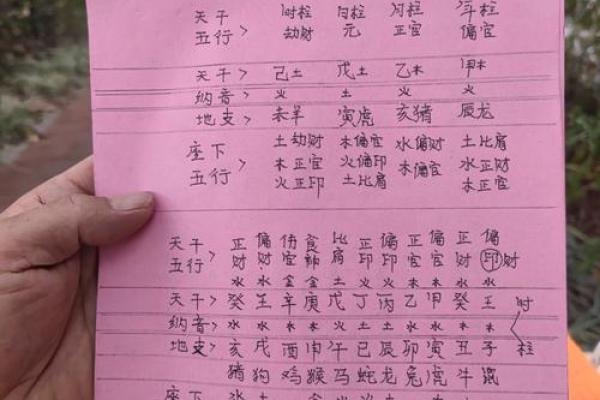 天干 时柱 日柱 月柱 年柱
五行> 劫财 元 正官 偏官
天干> 己土 戊土 乙木 甲木
纳音> 火 土 火 火
地支> 未羊 寅虎 亥猪 辰龙
座下 土劫财 木偏官 水偏财 土比肩
五行> 木正官 火偏印 木偏官 水正财
火正印 土比肩 木正官
天干 正 偏 伤 食 比 正 偏 正 偏 正 偏
五行> 财 财 官 神 肩 印 印 官 官 财 印 财
水 水 金 金 土 火 火 木 木 水 水
天干> 癸 壬 辛 庚 戊 丁 丙 乙 甲 癸 壬 时
纳音> 水 水 木 木 火 土 土 水 水 木 木
地支> 亥 戌 酉 申 午 巳 辰 卯 寅 丑 子 柱
猪 狗 鸡 猴 马 蛇 龙 兔 虎 牛 鼠
座下 水 土 金 火 火 土 木 木 土 水